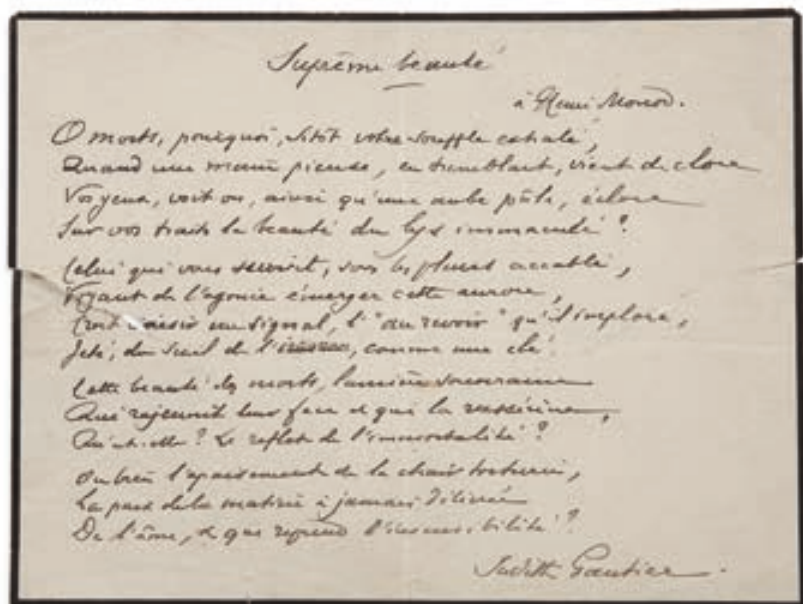 Suprême beauté
à Henri Monod.
O morts, pourquoi, sitôt votre souffle exhalé,
Quand une main pieuse, en tremblant, vient de clore
Vos yeux, voit on, ainsi qu'une aube pâle, éclore
Sur vos traits la beauté du lys immaculé ?
Celui qui vous survit, sous les pleurs accablé,
Voyant de l'agonie émerger cette aurore,
Croit saisir un signal, l'"au revoir" qu'il implore,
Jeté, du seuil de , comme une clé.
Cette beauté des morts, lumière souveraine
Qui rajeunit leur face & qui la rassérène,
Qu'est-elle ? Le reflet de l'immortalité ?
Ou bien l'apaisement de la chair torturée,
La paix de la matière à jamais délivrée
De l'âme, & que reprend l'insensibilité ?
Judith Gautier.